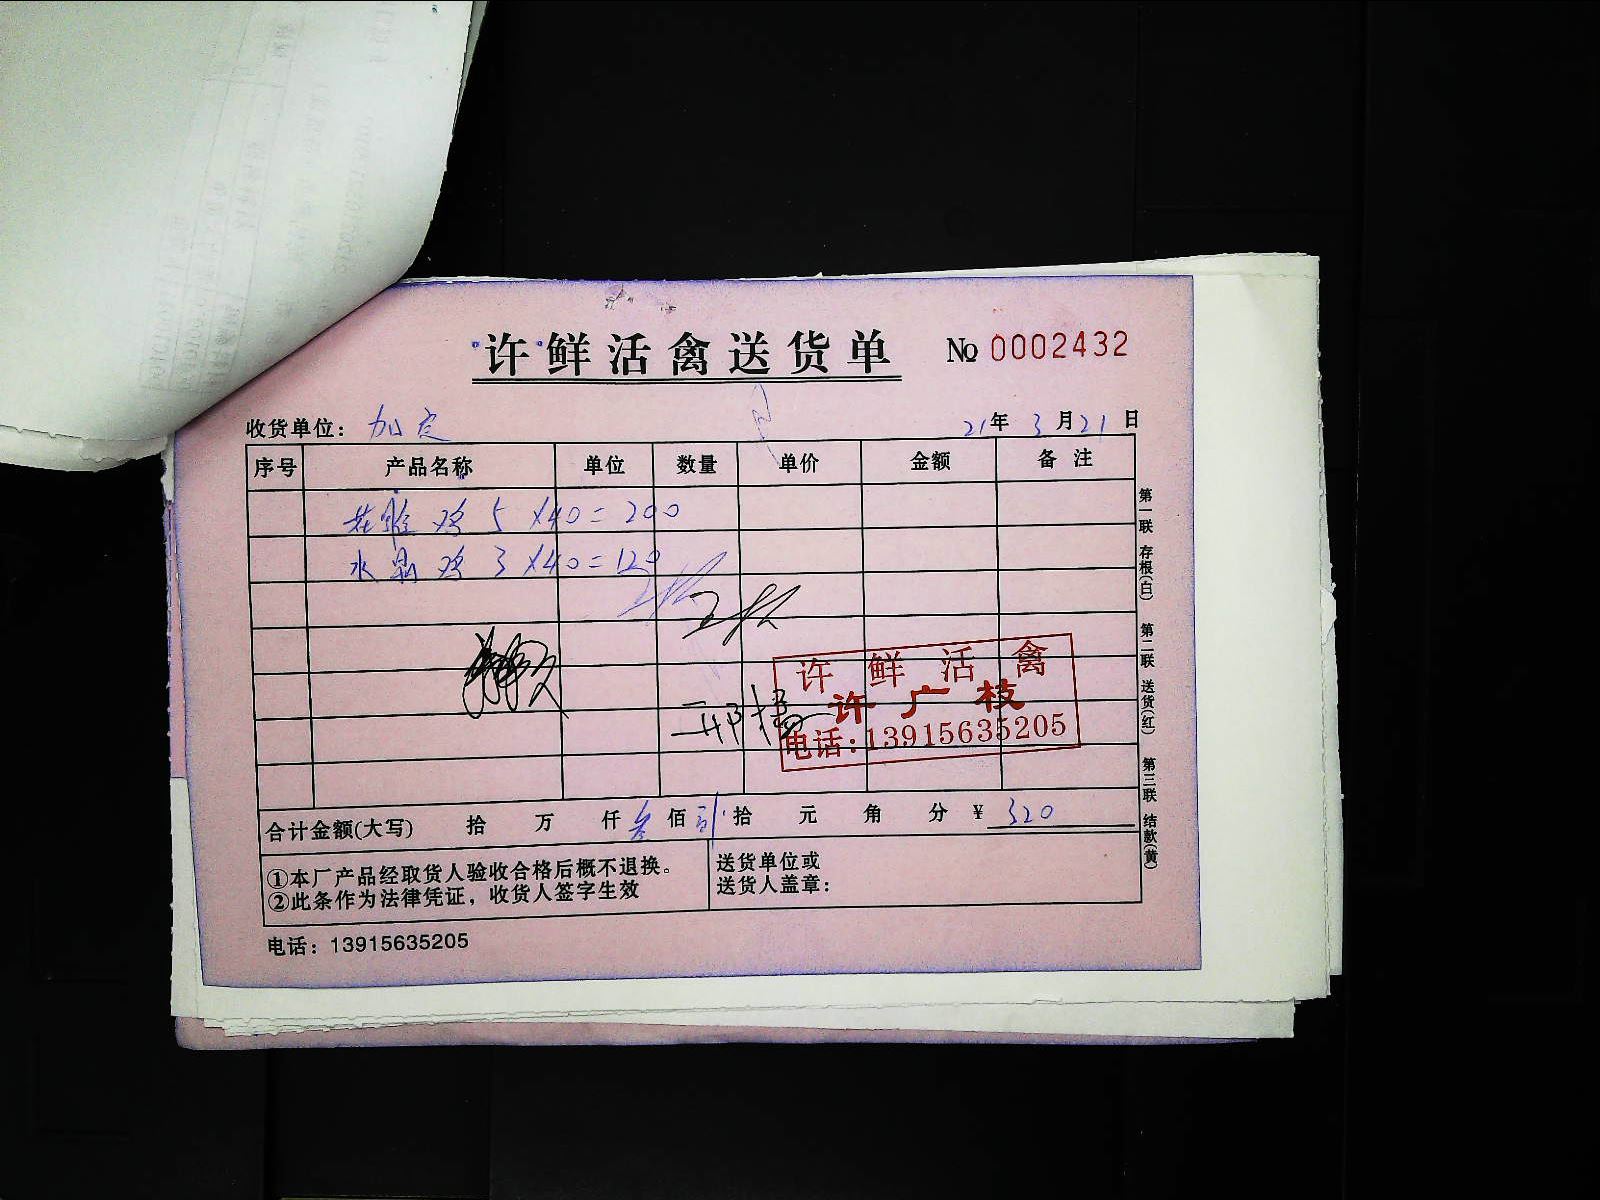 许鲜活禽送货单 No 0002432
收货单位： 加定 21年 3月21日
序号 产品名称 单位 数量 单价 金额 备注
鸡 5 X40=200
水晶鸡 3 X40=120
许鲜活禽
许广枝
电话:13915635205
合计金额(大写) 拾 万 仟 叁佰 贰拾 元 角 分 ¥ 320
①本厂产品经取货人验收合格后概不退换。
②此条作为法律凭证，收货人签字生效
送货单位或
送货人盖章：
电话：13915635205
第一联 存根(白) 第二联 送货(红) 第三联 结款(黄)